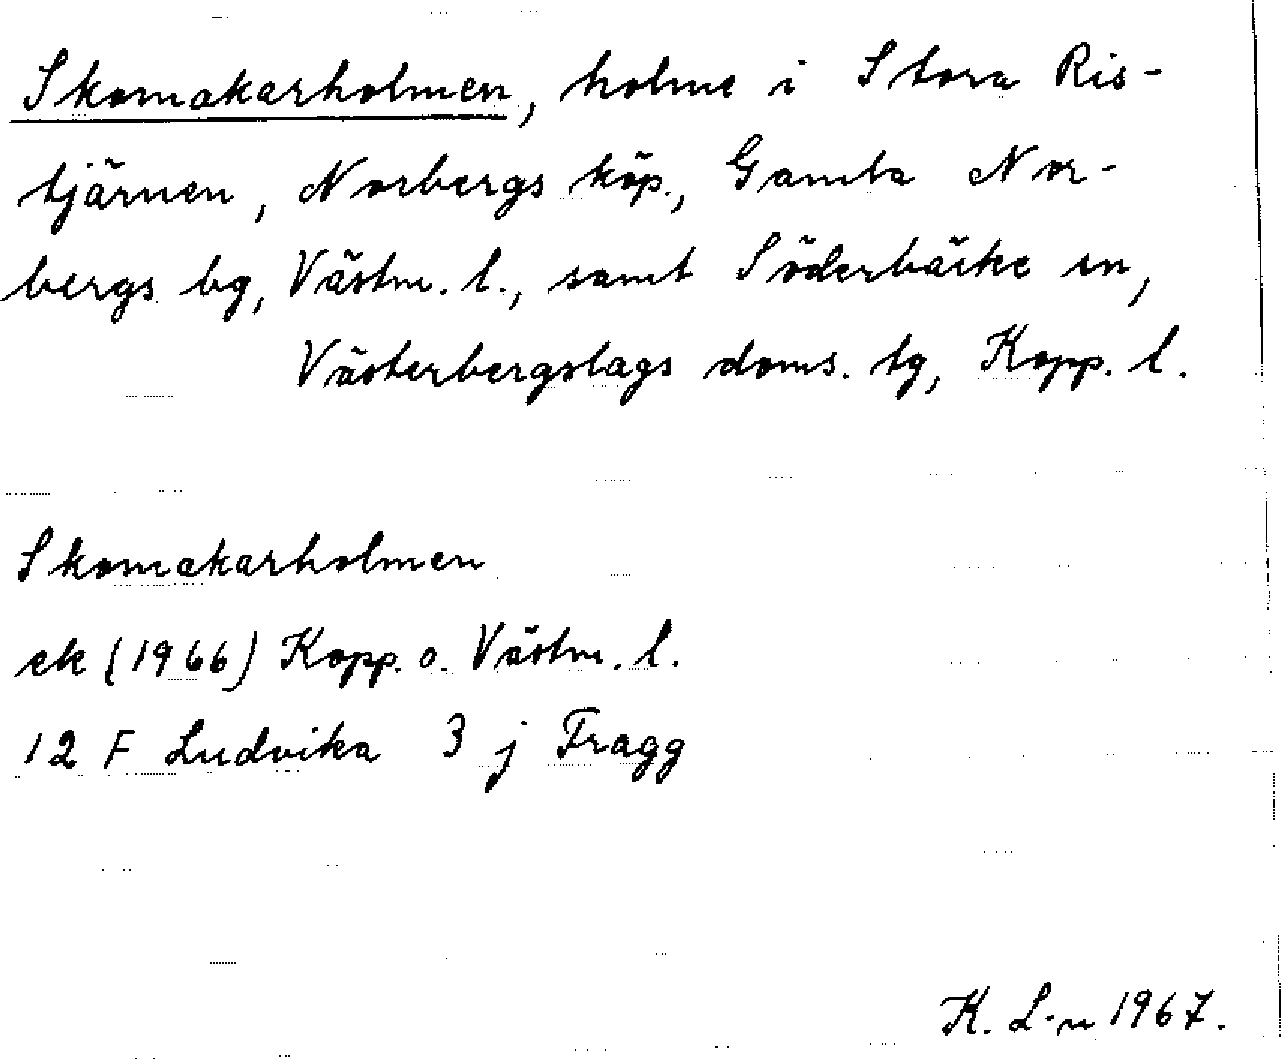 Skomakarholmen, holme i Stora Ris-
tjärnen, Norbergs köp., Gamla Nor-
bergs bg, Västm. l., samt Söderbärke sn,
Västerbergslags doms. tg, Kopp. l.
Skomakarholmen
ek (1966) Kopp. o. Västm. l.
12 F Ludvika 3 j Fragg
K. L-n 1967.